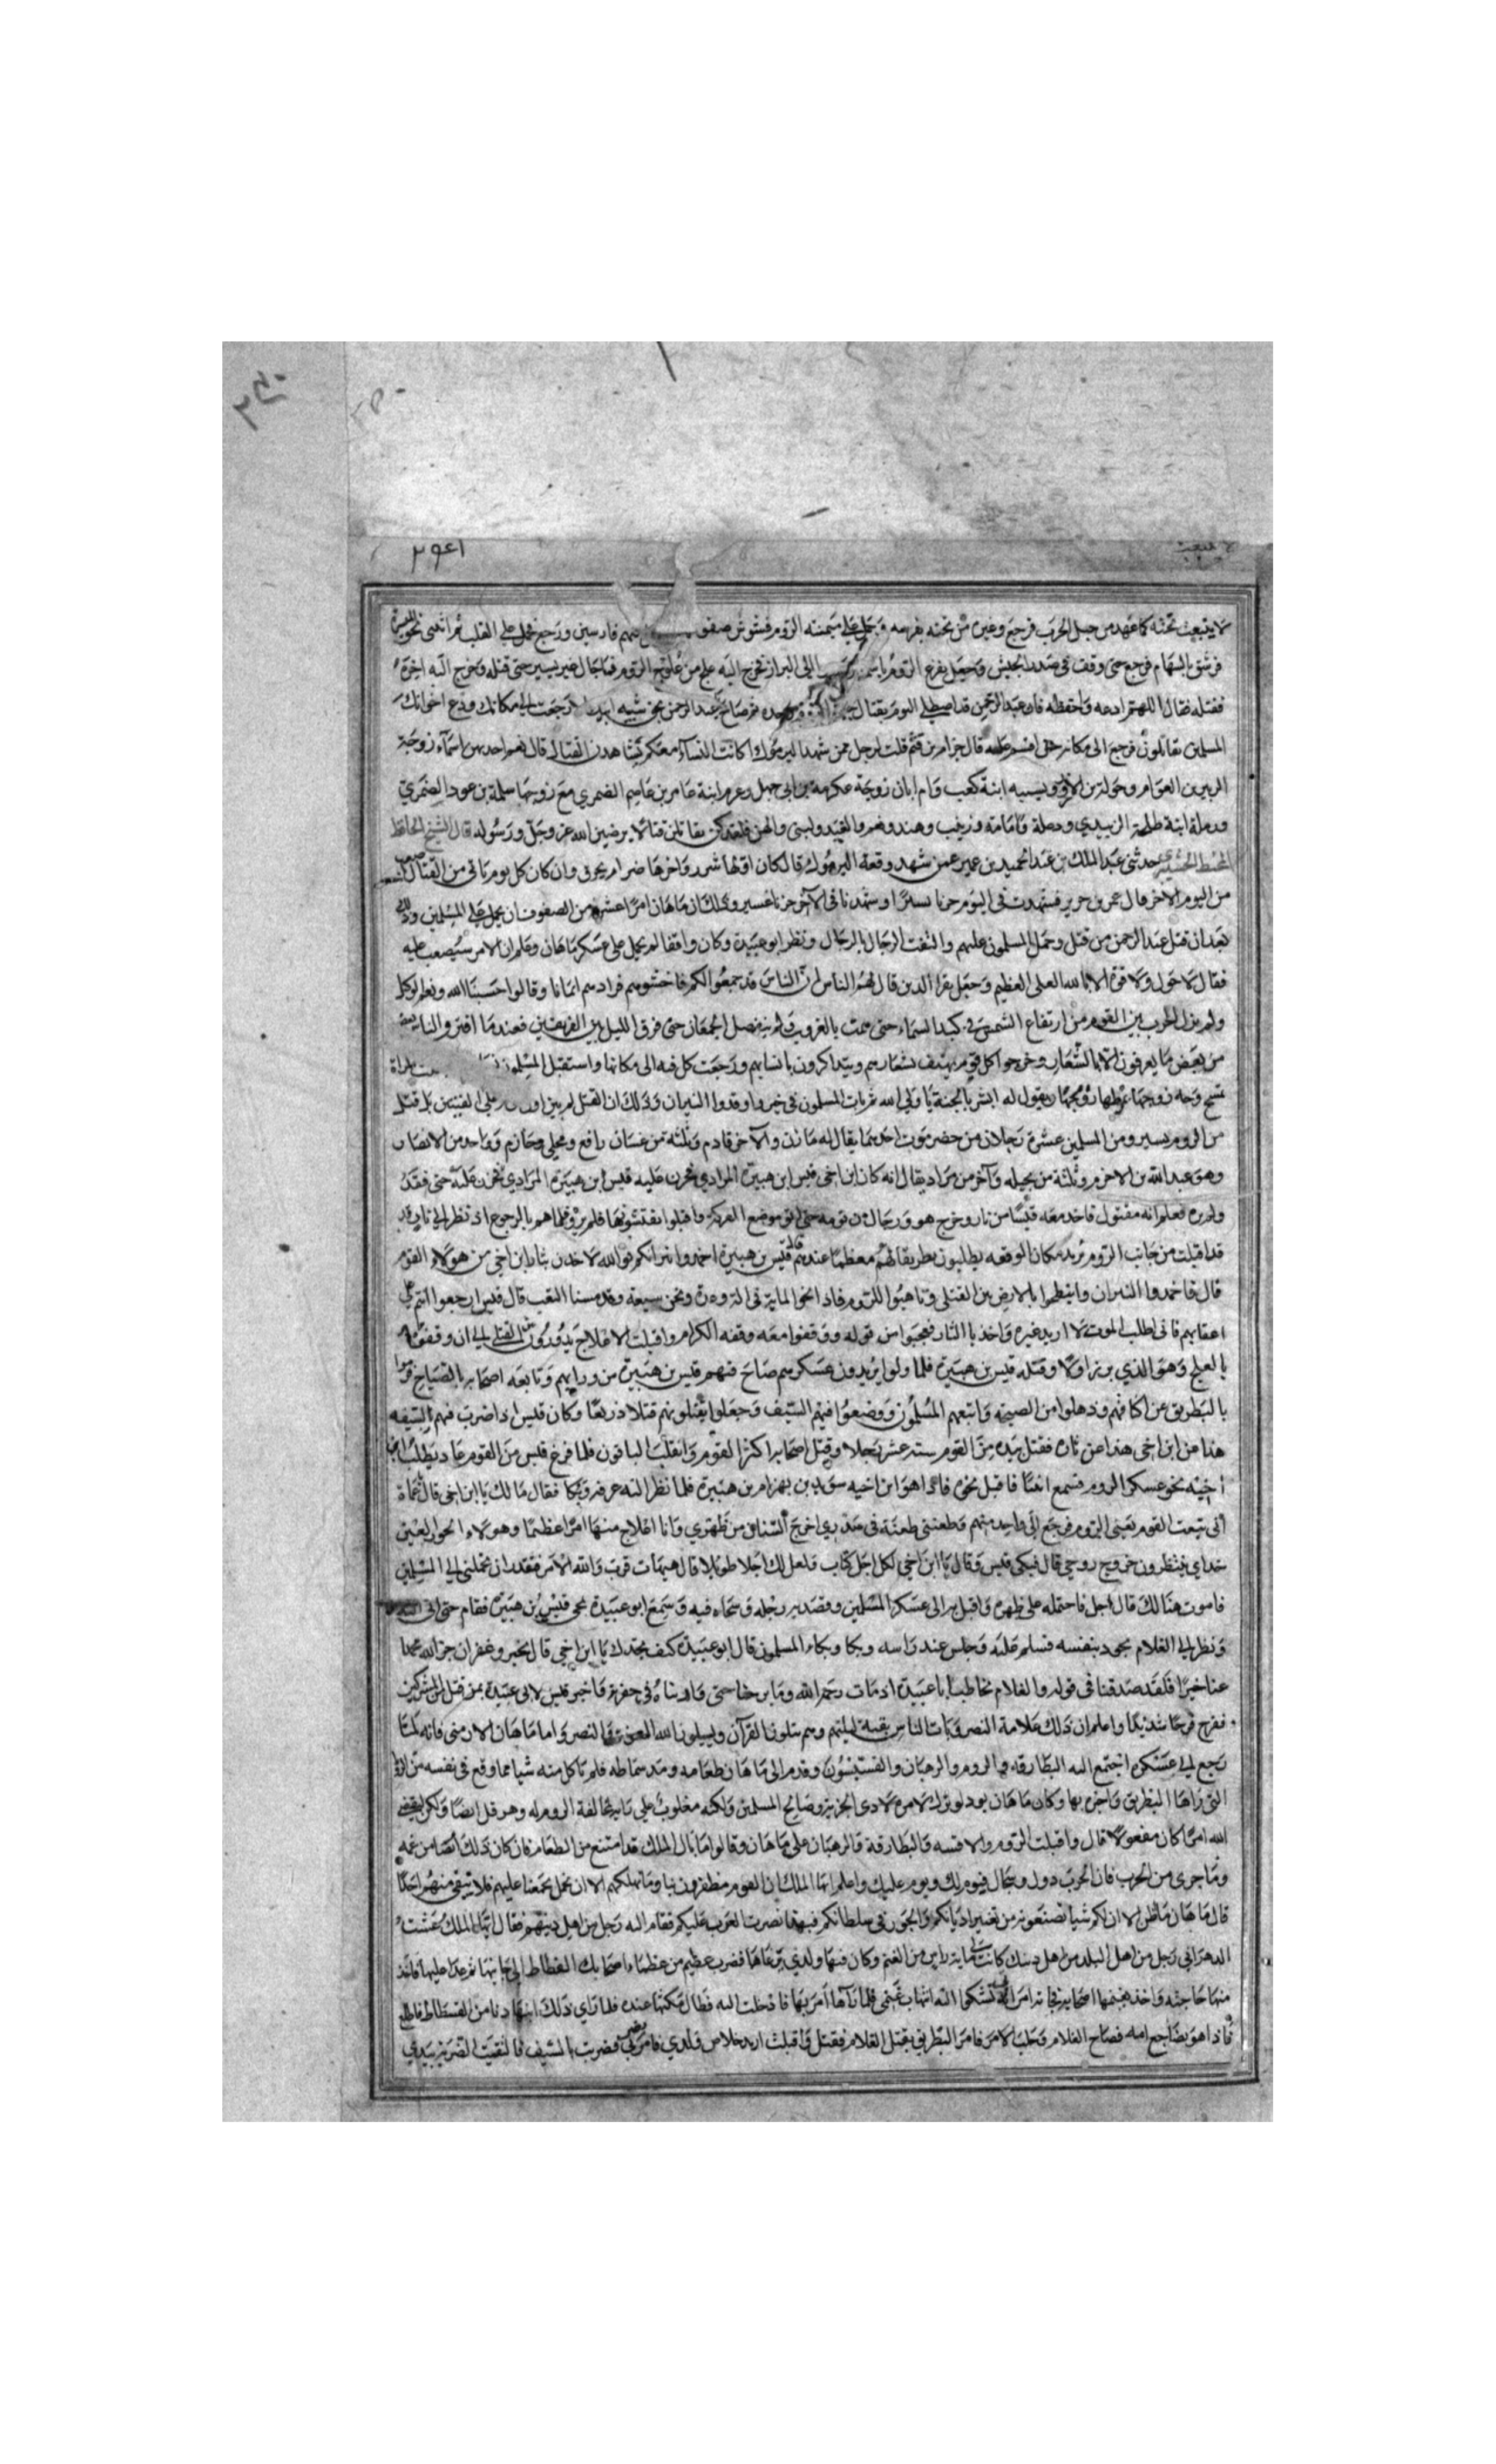 لا ينبعث تحته كما عهد من جبل الحرب فرجع وغيره من تحته بفرسه وحمل على ميمنة الروم فشوش صفو فارسين ورجع فحمل على القلب ثم انثنى نحو
فرشق بالسهام فرجع حتى وقف في صدر الجيش وجعل يفزع الروم باسمه الى البراز فخرج اليه علج من علوج الروم فما جال غير يسير حتى قتله وخرج اليه اخره
فقتله فقال اللهم ارعه واحفظه فان عبد الرحمن قد اصطلى اليوم بقتال ثم صاح يا عبد الرحمن بحق شيبة ابيك رجعت الى مكانك ودع اخوانك
المسلمين يقاتلون فرجع الى مكانه حتى اقسم عليه قال حزام بن غنم قلت لرجل ممن شهد اليرموك اكانت النساء معكم يشاهدن القتال قال نعم احدهن اسماء زوجة
الزبير بن العوام وخولة بن الازور ونسيبه ابنة كعب وام ابان زوجة عكرمة بن ابي جهل وعرم ابنة عامر بن عاصم الضمري مع زوجها سلمة بن عود الضمري
ورملة ابنة طلحة الزبيدي ورملة وامامة وزينب وهند ونعم والقيد ولبنى والهن فلقد كن يقاتلن قتالا يرضين الله عز وجل ورسوله قال الشيخ الحافظ
حدثني عبد الملك بن عبد الحميد بن عمير عمن شهد وقعة اليرموك قال كان اولها شرر واخرها ضرام يحرق وان كان كل يوم ياتي من القتال
من اليوم الاخر قال عمر بن حرير فشهدت في اليوم حربا يسيرا وشهدنا في الآخر حربا عسيرا وذلك ان ماهان امر اعشره من الصفوف ان يحمل على المسلمين وذلك
بعد ان قتل عبد الرحمن من قتل وحمل المسلمون عليهم والتفت الرجال بالرجال ونظر ابو عبيدة وكان واقفا لم يحمل على عسكر ماهان وعلم ان الامر سيصعب عليه
فقال لا حول ولا قوة الا بالله العلي العظيم وجعل يقرا الذين قال لهم الناس ان الناس قد جمعوا لكم فاخشوهم فزادهم ايمانا وقالوا حسبنا الله ونعم الوكيل
ولم يزل الحرب بين القوم من ارتفاع الشمس في كبد السماء حتى همت بالغروب ولم ينفصل الجمعان حتى فرق الليل بين الفريقين فعند ما افترق الناس بعضهم
من بعض ما يعرفون الا بالشعار وخرجوا كل قوم يهتف بشعارهم ويتذاكرون بانسابهم ورجعت كل فيه الى مكانها واستقبل المسلمون
تمسح وجه زوجها يقول له ابشر بالجنة يا ولي الله ثم بات المسلمون في خير واوقدوا النيران وذلك ان القتل لم يبن اول على الفئتين بل قتل
من الروم يسير ومن المسلمين عشرة رجلان من حضرموت احدهما يقال له مازن والآخر قادم وثلثة من غسان رافع ومجلي وحازم وواحد من الانصار
وهو عبد الله بن الاخرم وثلثة من بجيله وآخر من مراد يقال انه كان ابن اخي قيس ابن هبيرة المرادي فحزن عليه قيس ابن هبيرة المرادي حتى فقد
ولم يره فعلم انه مقتول فاخذ معه قبسا من نار وخرج هو ورجال من قومه حتى اتو موضع المعركة واقبلوا يفتشونها فلم يروه فلما هم بالرجوع اذ نظر الى نار
قد اقبلت من جانب الروم تريد مكان الوقعه يطلبون بطريقا لهم معظما عندهم قال قيس بن هبيرة اخمدوا نيرانكم فوالله لاخذن بثار ابن اخي من هولاء القوم
قال فاخمدوا النيران وانبطحوا بالارض بين القتلى وتاهبوا للروم فاذا نحو المايه في العدة ونحن سبعة وقد مسنا التعب قال قيس ارجعوا انتم على
اعقابكم فاني اطلب الموت لا اريد غيره واخذ بالثار فعجبوا من قوله ووقفوا معه وقفه الكرام واقبلت الاعلاج يدورون على القتلى الى ان وقفوا
بالعلج وهو الذي برز اولا وقتله قيس بن هبيرة فلما ولوا يريدون عسكرهم صاح فيهم قيس بن هبيرة من ورايهم وتابعه اصحابه بالصياح فرموا
بالبطريق عن اكتافهم وذهلوا من الصيحه واتبعهم المسلمون ووضعوا فيهم السيف وجعلوا يقتلونهم قتلا ذريعا وكان قيس اذا ضرب فيهم السيف يقول
هذا عن ابن اخي هذا عن ثاره فقتل بيده من القوم ستة عشر رجلا وقتل اصحابه اكثر القوم وانقلب الباقون فلما فرغ قيس من القوم عاد يطلب ابن
اخيه نحو عسكر الروم فسمع انينا فاقبل نحوه فاذا هو ابن اخيه سويد بن بهرام بن هبيرة فلما نظر اليه عرفه وبكا فقال مالك يا ابن اخي قال عماه
اني تبعت القوم يعني الروم فرجع الي واحد منهم فطعنني طعنة في صدري اخرج السنان من ظهري وانا اعالج منها امرا عظيما وهولاء الحور العين
حذاي ينتظرون خروج روحي قال فبكى قيس وقال يا ابن اخي لكل اجل كتاب فلعل لك اجلا طويلا قال هيهات قرب والله الامر فتقدر ان تحملني الى المسلمين
فاموت هنالك قال اجل فاحتمله على ظهره واقبل به الى عسكر المسلمين وقصد به رحله وسجاه فيه وسمع ابو عبيدة بمجي قيس بن هبيرة فقام حتى اتى
ونظر الى الغلام يجود بنفسه فسلم عليه وجلس عند راسه وبكا وبكاء المسلمون قال ابو عبيدة كيف تجدك يا ابن اخي قال بخير وغفران جزا الله محمدا
عنا خيرا فلقد صدقنا في قوله والغلام يخاطب ابا عبيدة اذ مات رحمه الله وما برحنا حتى واريناه في حفرته فاخبر قيس لابي عبيدة بمن قتل المشركين
ففرح فرحا شديدا واعلم ان ذلك علامة النصر وبات الناس بقية ليلتهم وهم يتلون القرآن ويسيلون الله المعونة والنصر واما ماهان الارمني فانه لما
رجع الى عسكره اجتمع اليه البطارقة والروم والرهبان والقسيسون وقدم الى ماهان طعامه ومد سماطه فلم ياكل منه شيا مما وقع في نفسه من الرويا
التي راها البطريق واخبره بها وكان ماهان يود لو ترك الامره لادى الجزية وصالح المسلمين ولكنه مغلوب على رايه مخالفة الروم له وهو قد ايضا ولكن ليقضي
الله امرا كان مفعولا قال واقبلت الروم والاقسه والبطارقة والرهبان على ماهان وقالوا ما بال الملك قد امتنع من الطعام فان كان ذلك ايضا من غمه
وما جرى من الحرب فان الحرب دول وسجال فيوم لك ويوم عليك واعلم ايها الملك ان القوم مظفرون بنا وما تهلكهم الا ان نحمل بجمعنا عليهم فلا يبقى منهم احدا
قال ماهان ما اظن الا ان لكم شيا تصنعونه من تغيير اديانكم والجور في سلطانكم فبهذا نصرت العرب عليكم فقام اليه رجل من اهل دينهم فقال ايها الملك عشت
الدهر اني رجل من اهل البلد من اهل دينك كانت لي ماية راس من الغنم وكان فيها ولدي يرعاها فضرب عظيم من عظماء اصحابك الفطاط الى جانبها ثم عدا عليها فاخذ
منها حاجته واخذ بقيتها اصحابه فجاته امراتي تشكوا اليه انتهاب غنمي فلما رآها امر بها فادخلت اليه فطال مكثها عنده فلما راى ذلك ابنها دنا من الفسطاط فاطلع
فاذا هو يضاجع امه فصاح الغلام وجلب الامر فامر البطريق بقتل الغلام فقتل واقبلت اريد خلاص ولدي فامر بي يضرب فضربت بالسيف فالتقيت الضربة بيدي